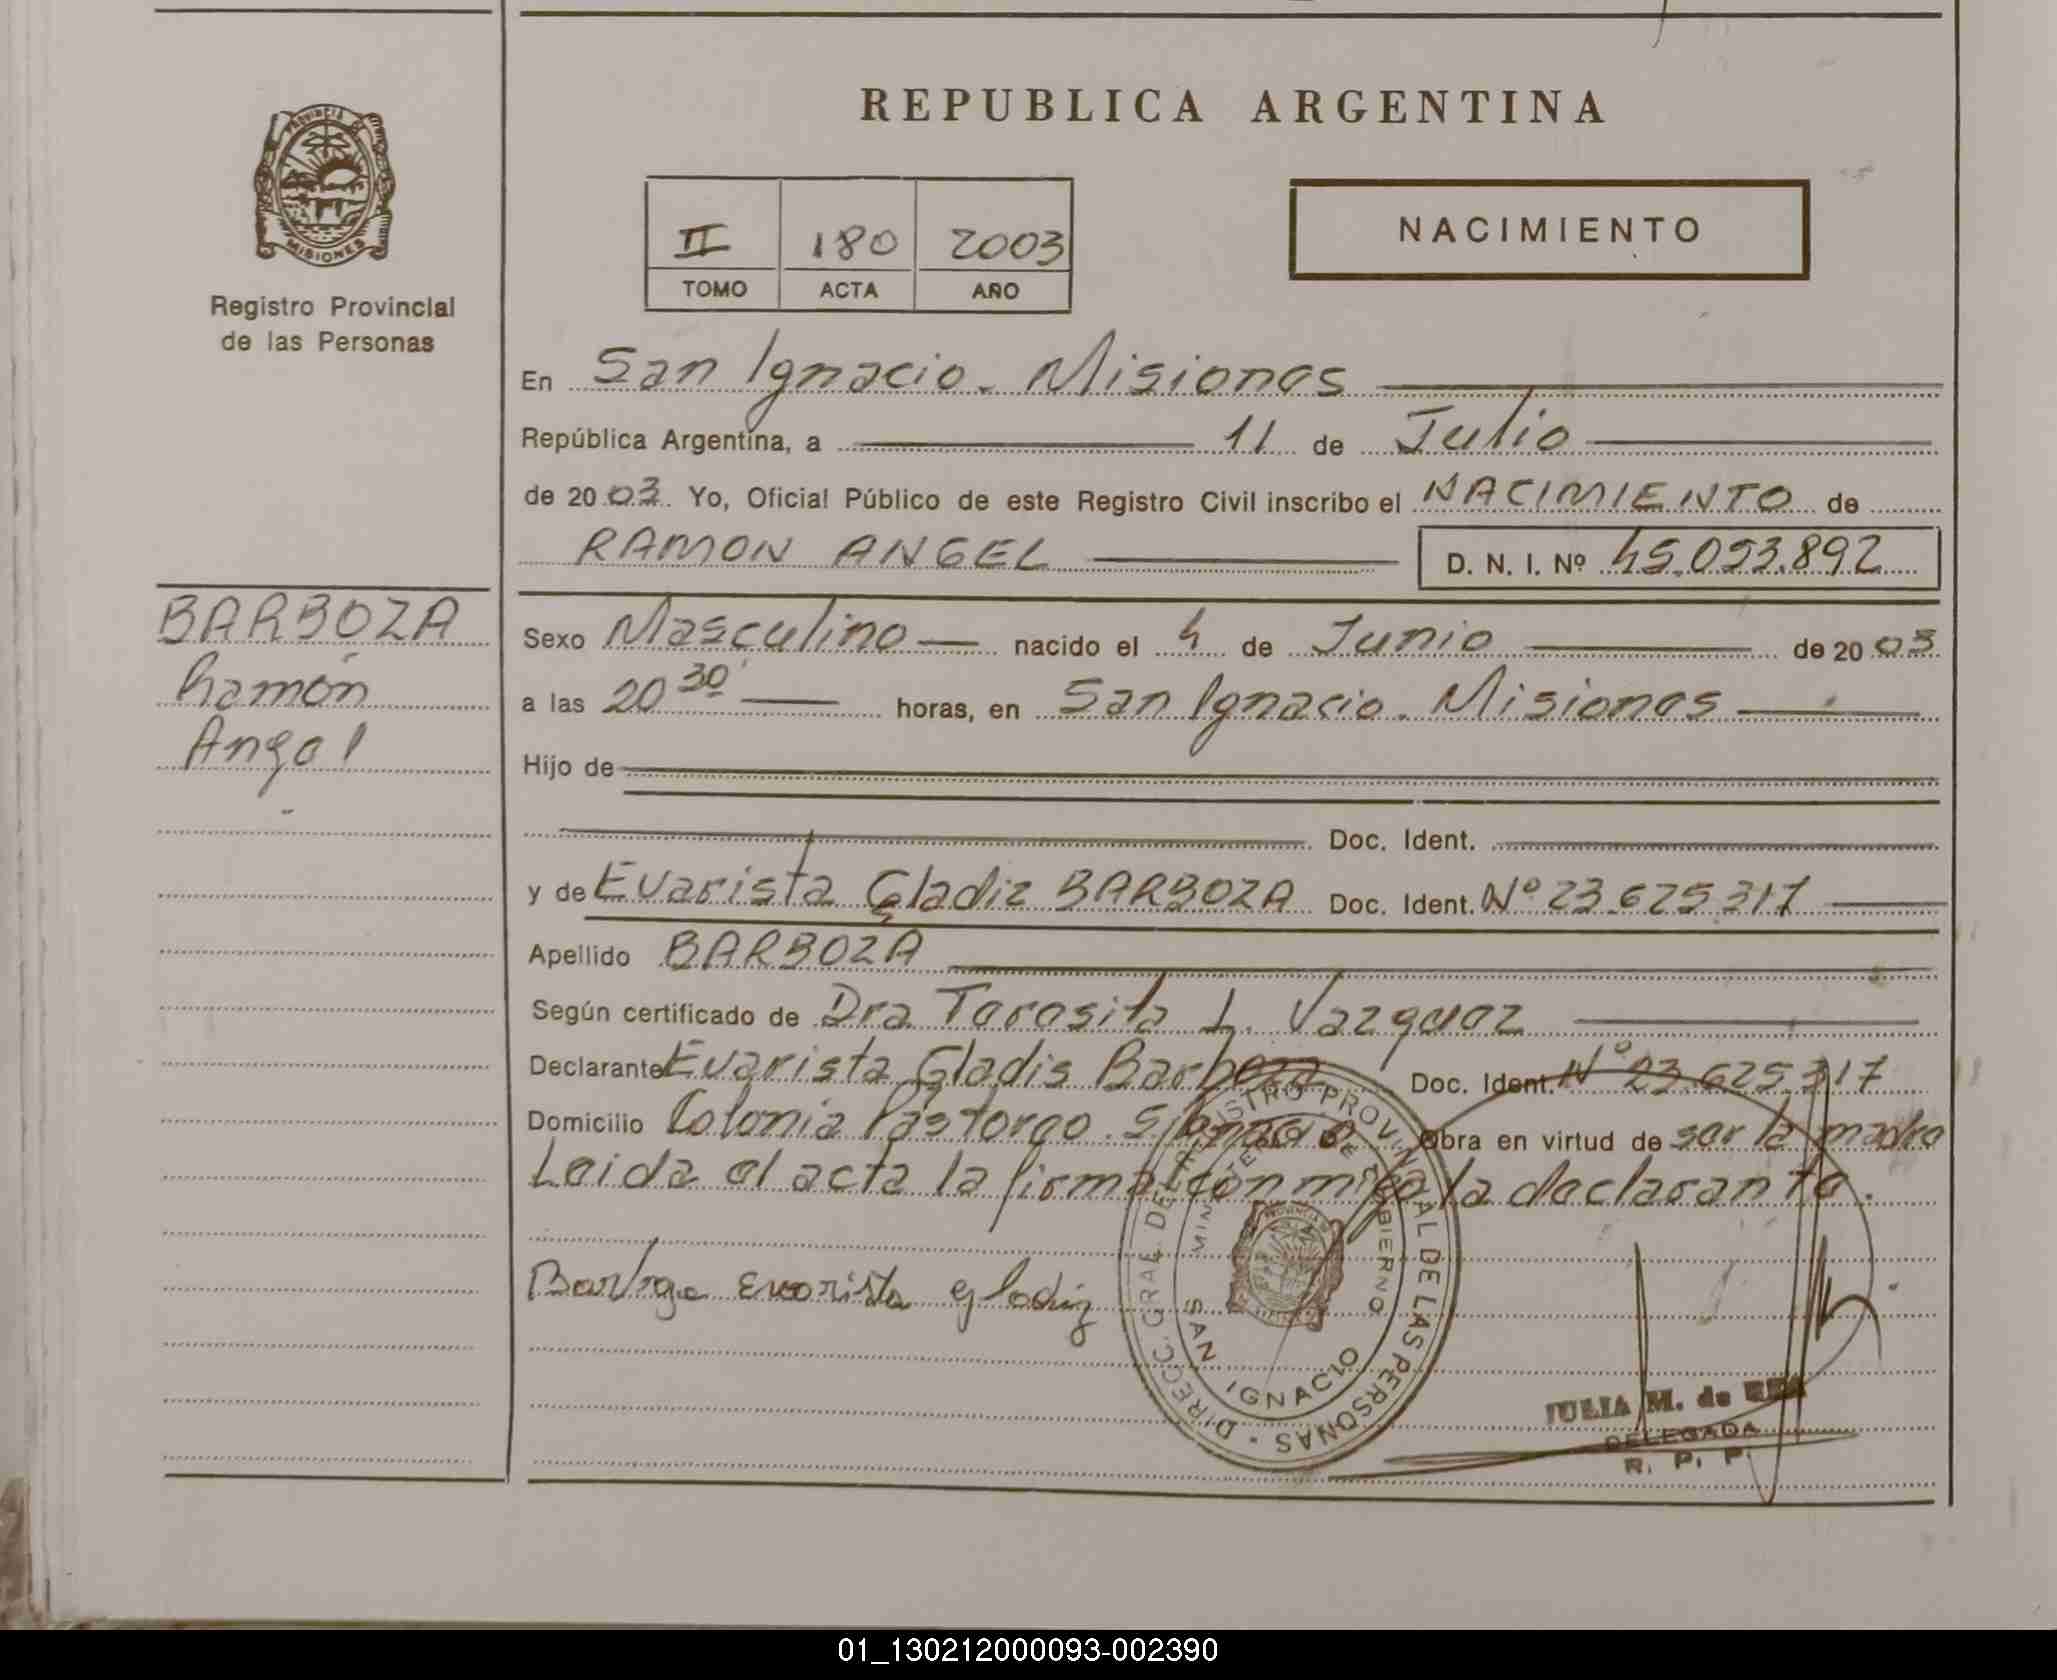 REPUBLICA ARGENTINA
PROVINCIA DE
MISIONES
Registro Provincial
de las Personas
II 180 2003
TOMO ACTA AÑO
NACIMIENTO
En San Ignacio. Misiones
República Argentina, a 11 de Julio
de 2003. Yo, Oficial Público de este Registro Civil inscribo el NACIMIENTO de
RAMON ANGEL D. N. I. Nº 45.053.892
BARBOZA
Ramón
Angel
Sexo Masculino nacido el 4 de Junio de 2003
a las 20 30' horas, en San Ignacio. Misiones
Hijo de
Doc. Ident.
y de Evarista Gladiz BARBOZA Doc. Ident. Nº 23.625.317
Apellido BARBOZA
Según certificado de Dra Teresita L. Vazquez
Declarante Evarista Gladis Barboza Doc. Ident. Nº 23.625.317
Domicilio Colonia Pastoreo. S. Ignacio Obra en virtud de ser la madre
Leida el acta la firma con migo la declarante.
Barboza Evarista gladiz
DIRECC. GRAL. DEL REGISTRO PROVINCIAL DE LAS PERSONAS
MINISTERIO DE GOBIERNO
SAN IGNACIO
JULIA M. de
DELEGADA
R. P. P.
01_130212000093-002390